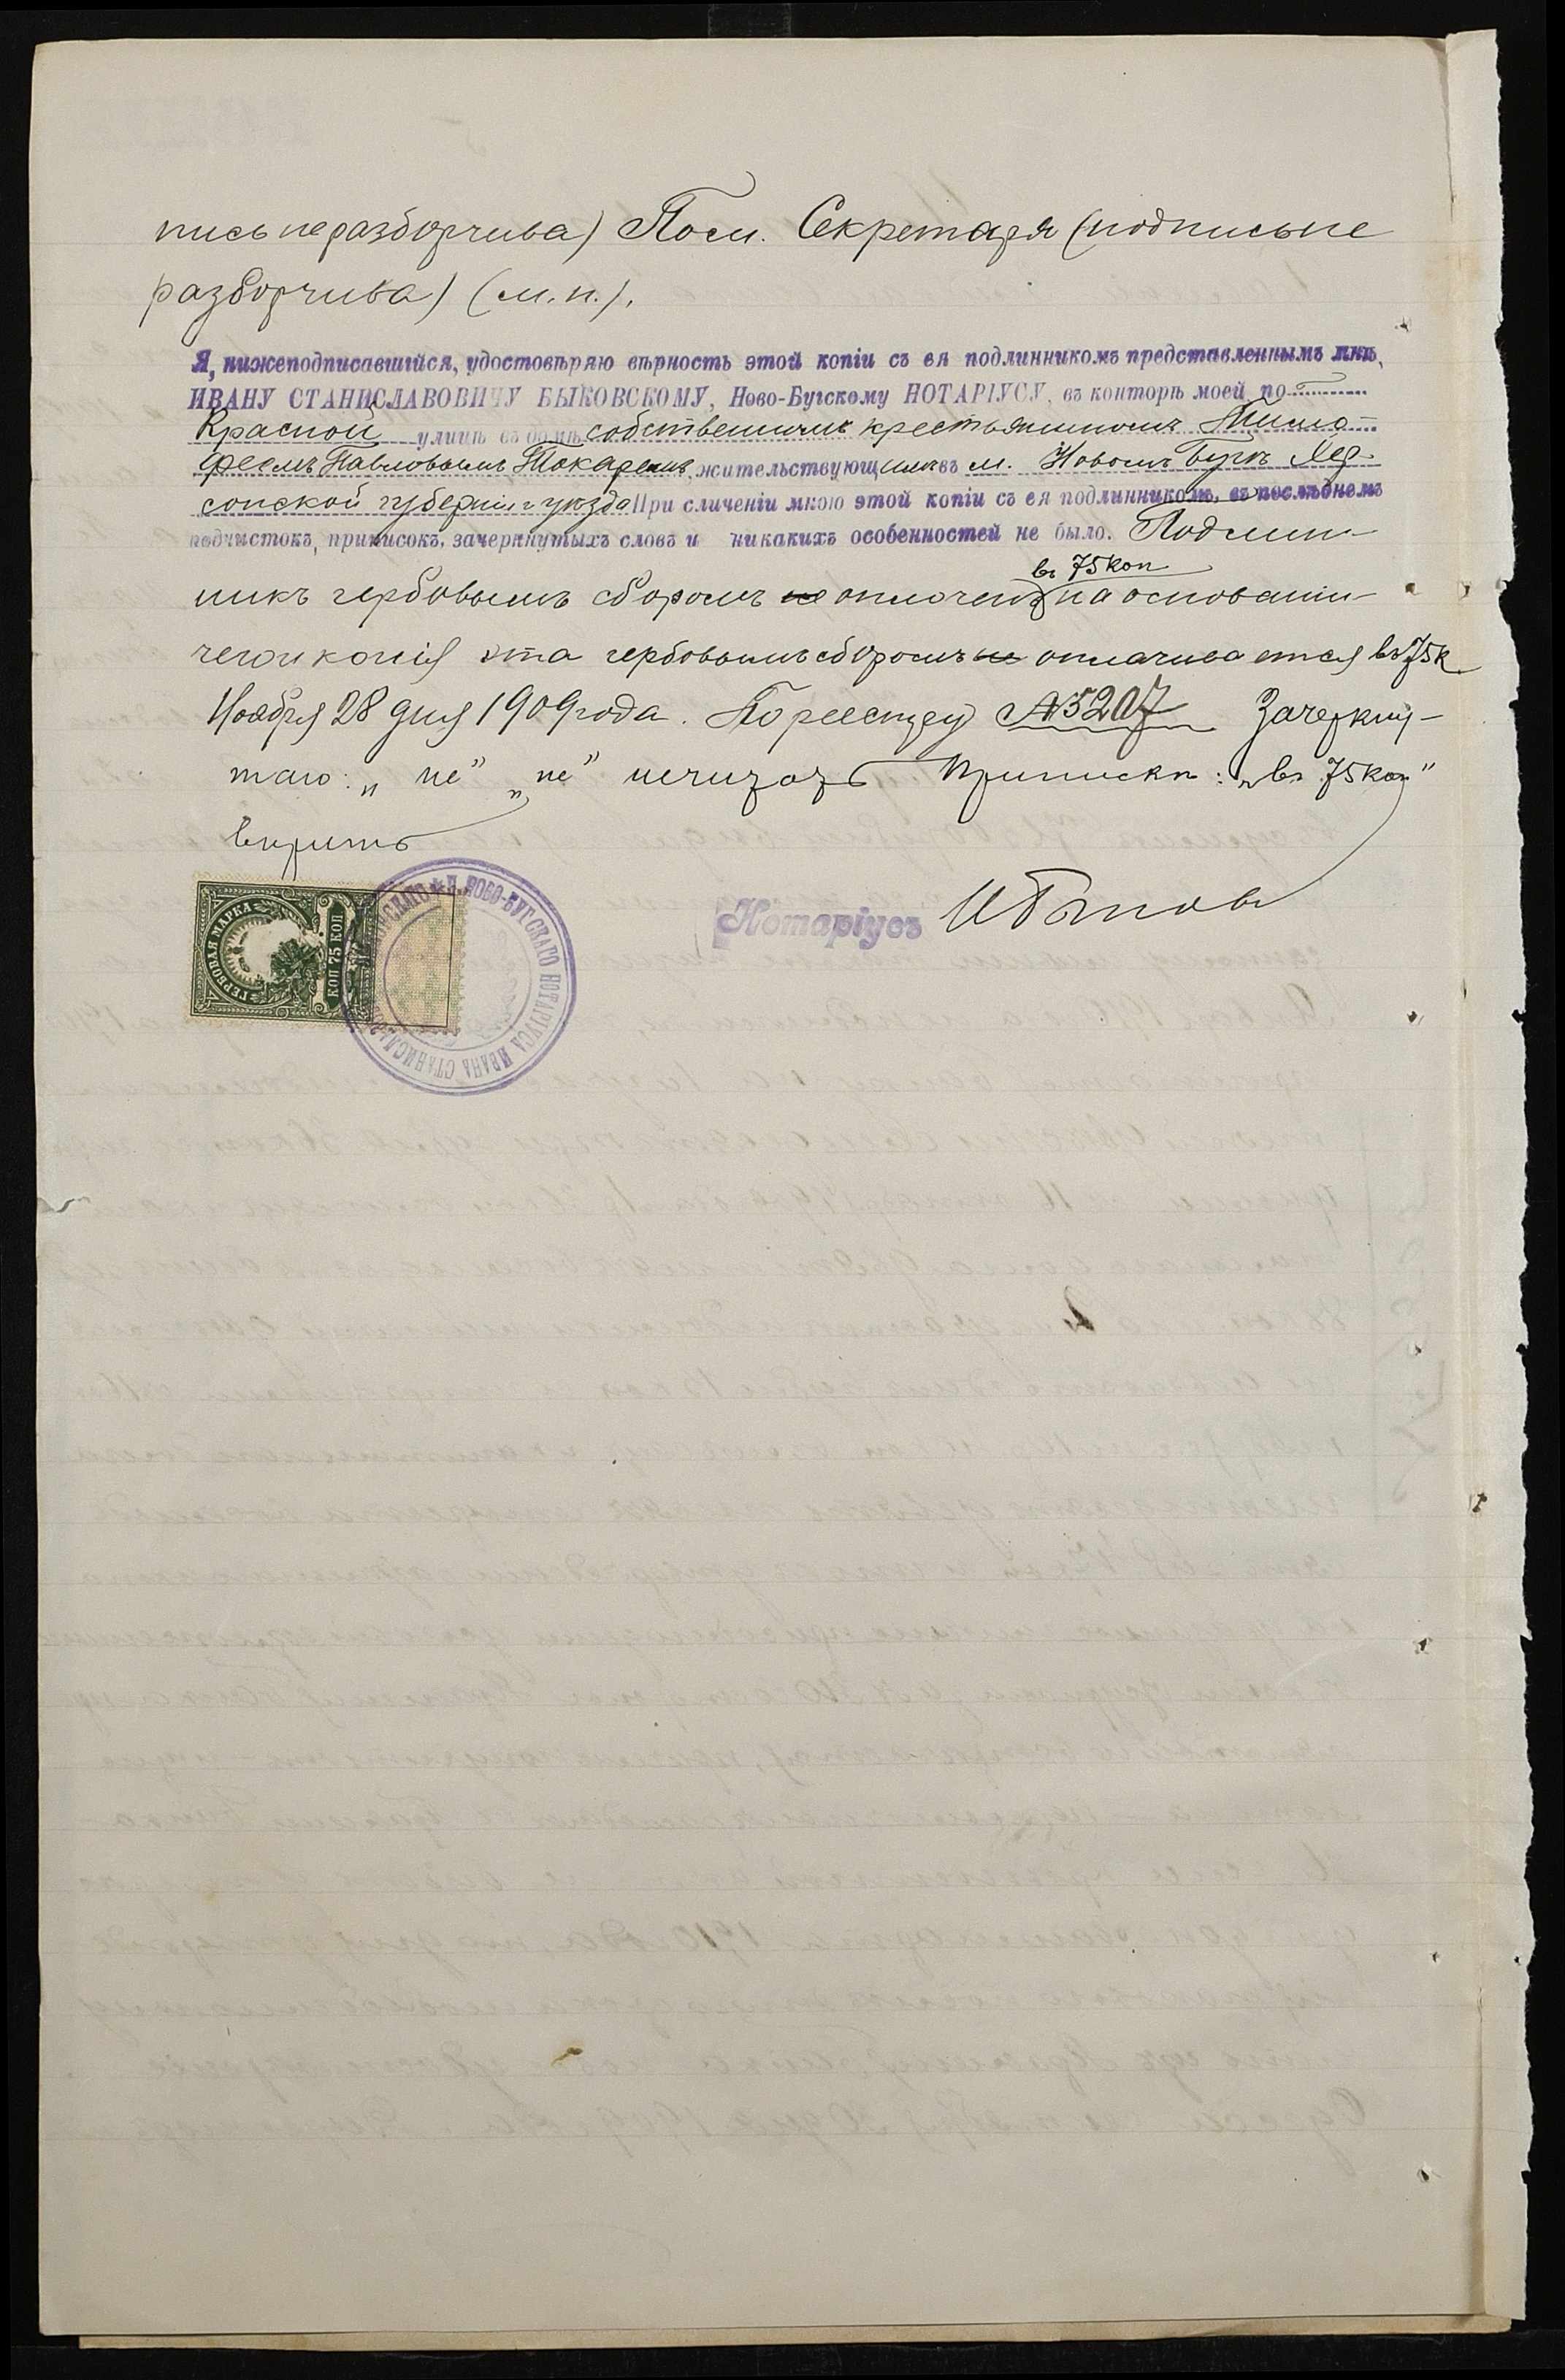 пись неразборчива) Пом. Секретаря (подпись не
разборчива) (м.п.).
Я, нижеподписавшійся, удостовѣряю вѣрность этой копіи съ ея подлинникомъ представленнымъ мнѣ,
ИВАНУ СТАНИСЛАВОВИЧУ БЫКОВСКОМУ, Ново-Бугскому НОТАРІУСУ, въ конторѣ моей по
Красной улицѣ въ домѣ собственномъ крестьяниномъ Тимо-
феемъ Павловымъ Токаремъ, жительствующимъ въ м. Новомъ Бугѣ Хер-
сонской губерніи и уѣзда При сличеніи мною этой копіи съ ея подлинникомъ, въ послѣднемъ
подчистокъ, приписокъ, зачеркнутыхъ словъ и никакихъ особенностей не было. Подлин-
въ 75 коп
никъ гербовымъ сборомъ не оплоченъ на основаніи
чего и копія эта гербовымъ сборомъ не оплачивается въ 75 к
Ноября 28 дня 1909 года. По реестру № 5207 Зачеркну-
таго: „не" „не" не читать Приписка: „въ 75 коп"
вѣрить
ГЕРБОВАЯ МАРКА
КОП 75 КОП
НОВО-БУГСКАГО НОТАРІУСА ИВАНА СТАНИСЛАВОВИЧА
Нотаріусъ И Быков